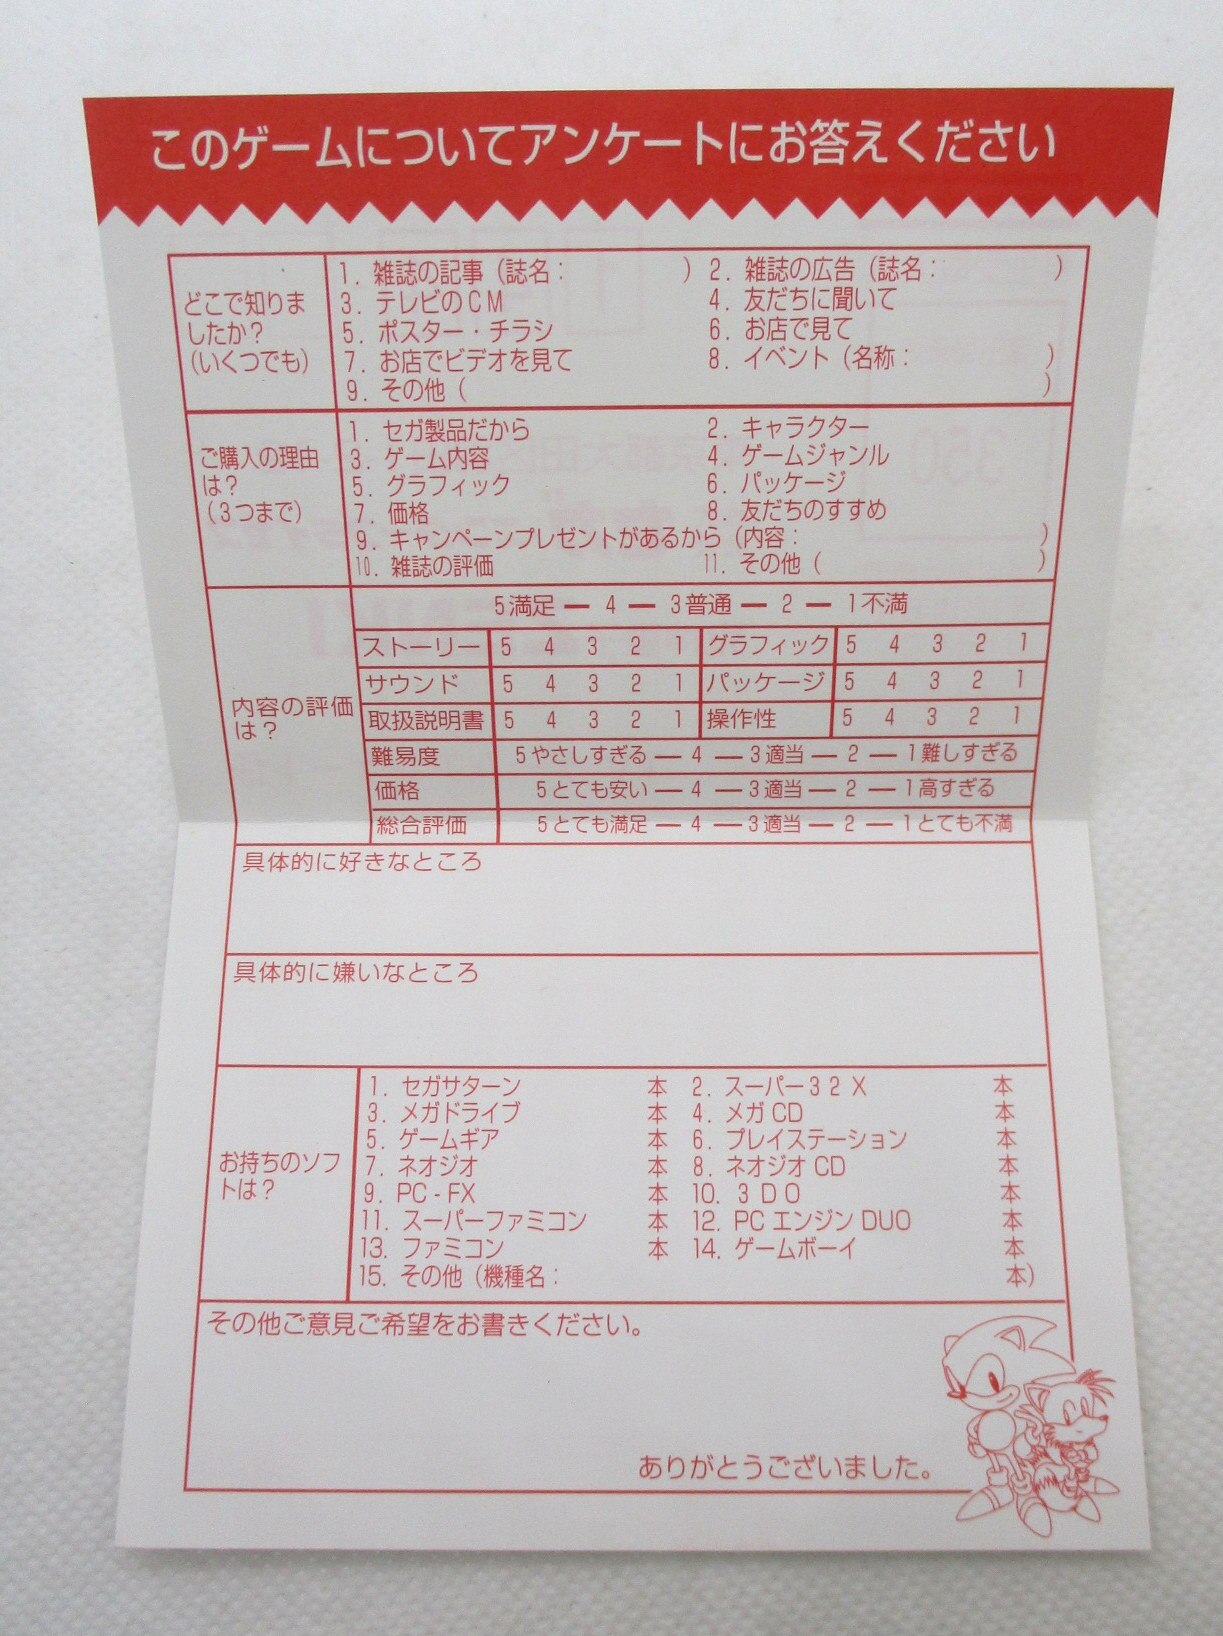 このゲームについてアンケートにお答えください
どこで知りま
したか？
（いくつでも）
1. 雑誌の記事（誌名：　　　　）2. 雑誌の広告（誌名：　　　　）
3. テレビのCM　　　　4. 友だちに聞いて
5. ポスター・チラシ　　　　6. お店で見て
7. お店でビデオを見て　　　　8. イベント（名称：　　　　）
9. その他（　　　　）
ご購入の理由
は？
（3つまで）
1. セガ製品だから　　　　2. キャラクター
3. ゲーム内容　　　　4. ゲームジャンル
5. グラフィック　　　　6. パッケージ
7. 価格　　　　8. 友だちのすすめ
9. キャンペーンプレゼントがあるから（内容：　　　　）
10. 雑誌の評価　　　　11. その他（　　　　）
内容の評価
は？
5満足 ー 4 ー 3普通 ー 2 ー 1不満
ストーリー 5 4 3 2 1 グラフィック 5 4 3 2 1
サウンド 5 4 3 2 1 パッケージ 5 4 3 2 1
取扱説明書 5 4 3 2 1 操作性 5 4 3 2 1
難易度 5やさしすぎる ー 4 ー 3適当 ー 2 ー 1難しすぎる
価格 5とても安い ー 4 ー 3適当 ー 2 ー 1高すぎる
総合評価 5とても満足 ー 4 ー 3適当 ー 2 ー 1とても不満
具体的に好きなところ
具体的に嫌いなところ
お持ちのソフ
トは？
1. セガサターン　　　　本 2. スーパー32X　　　　本
3. メガドライブ　　　　本 4. メガCD　　　　本
5. ゲームギア　　　　本 6. プレイステーション　　　　本
7. ネオジオ　　　　本 8. ネオジオCD　　　　本
9. PC-FX　　　　本 10. 3DO　　　　本
11. スーパーファミコン　　　　本 12. PCエンジンDUO　　　　本
13. ファミコン　　　　本 14. ゲームボーイ　　　　本
15. その他（機種名：　　　　本）
その他ご意見ご希望をお書きください。
ありがとうございました。